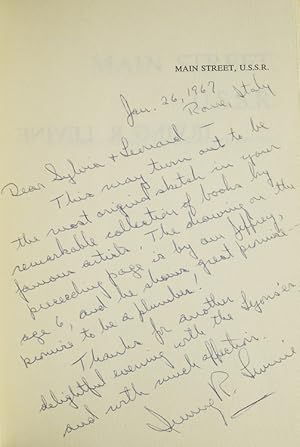 MAIN STREET, U.S.S.R.
Jan. 26, 1967
Rome, Italy
Dear Sylvia & Leonard —
This may turn out to be
the most original sketch in your
remarkable collection of books by
famous artists. The drawing on the
preceeding page is by our Jeffrey,
age 6, and he shows great promise--
promise to be a plumber!
Thanks for another
delightful evening with the Lyons'es
and with much affection.
Irving R. Levine